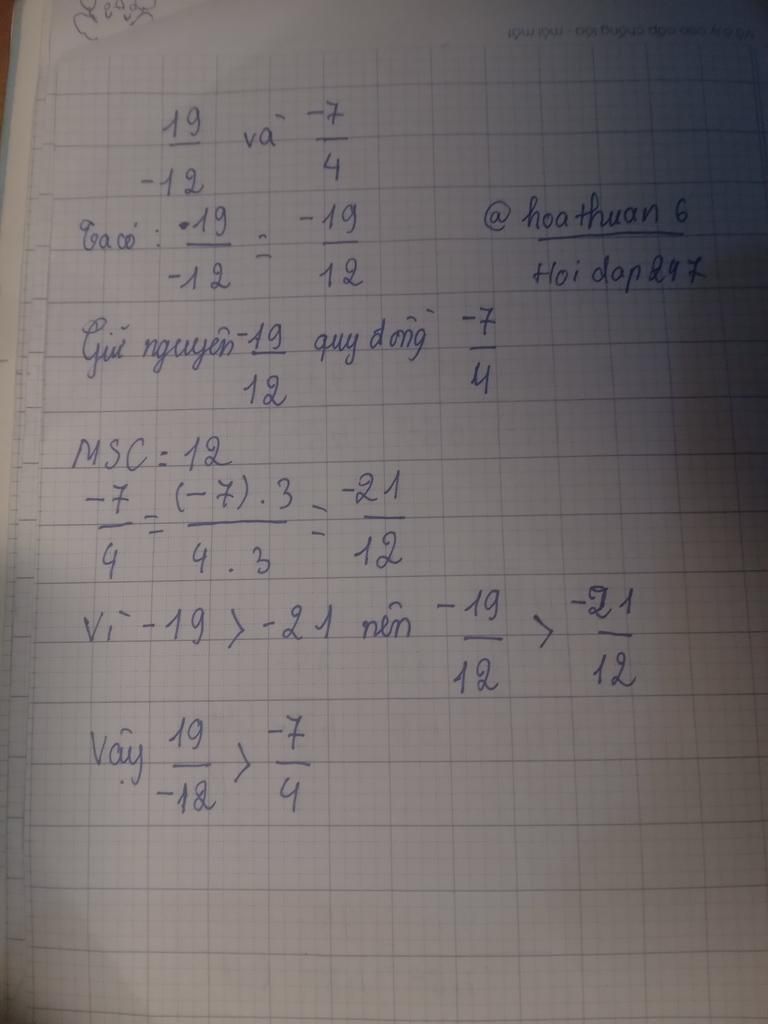 19/-12 và -7/4
Ta có: 19/-12 = -19/12
@ hoathuan 6
Hoi dap 247
Giữ nguyên -19/12 quy đồng -7/4
MSC = 12
-7/4 = (-7).3/4.3 = -21/12
Vì -19 > -21 nên -19/12 > -21/12
Vậy 19/-12 > -7/4